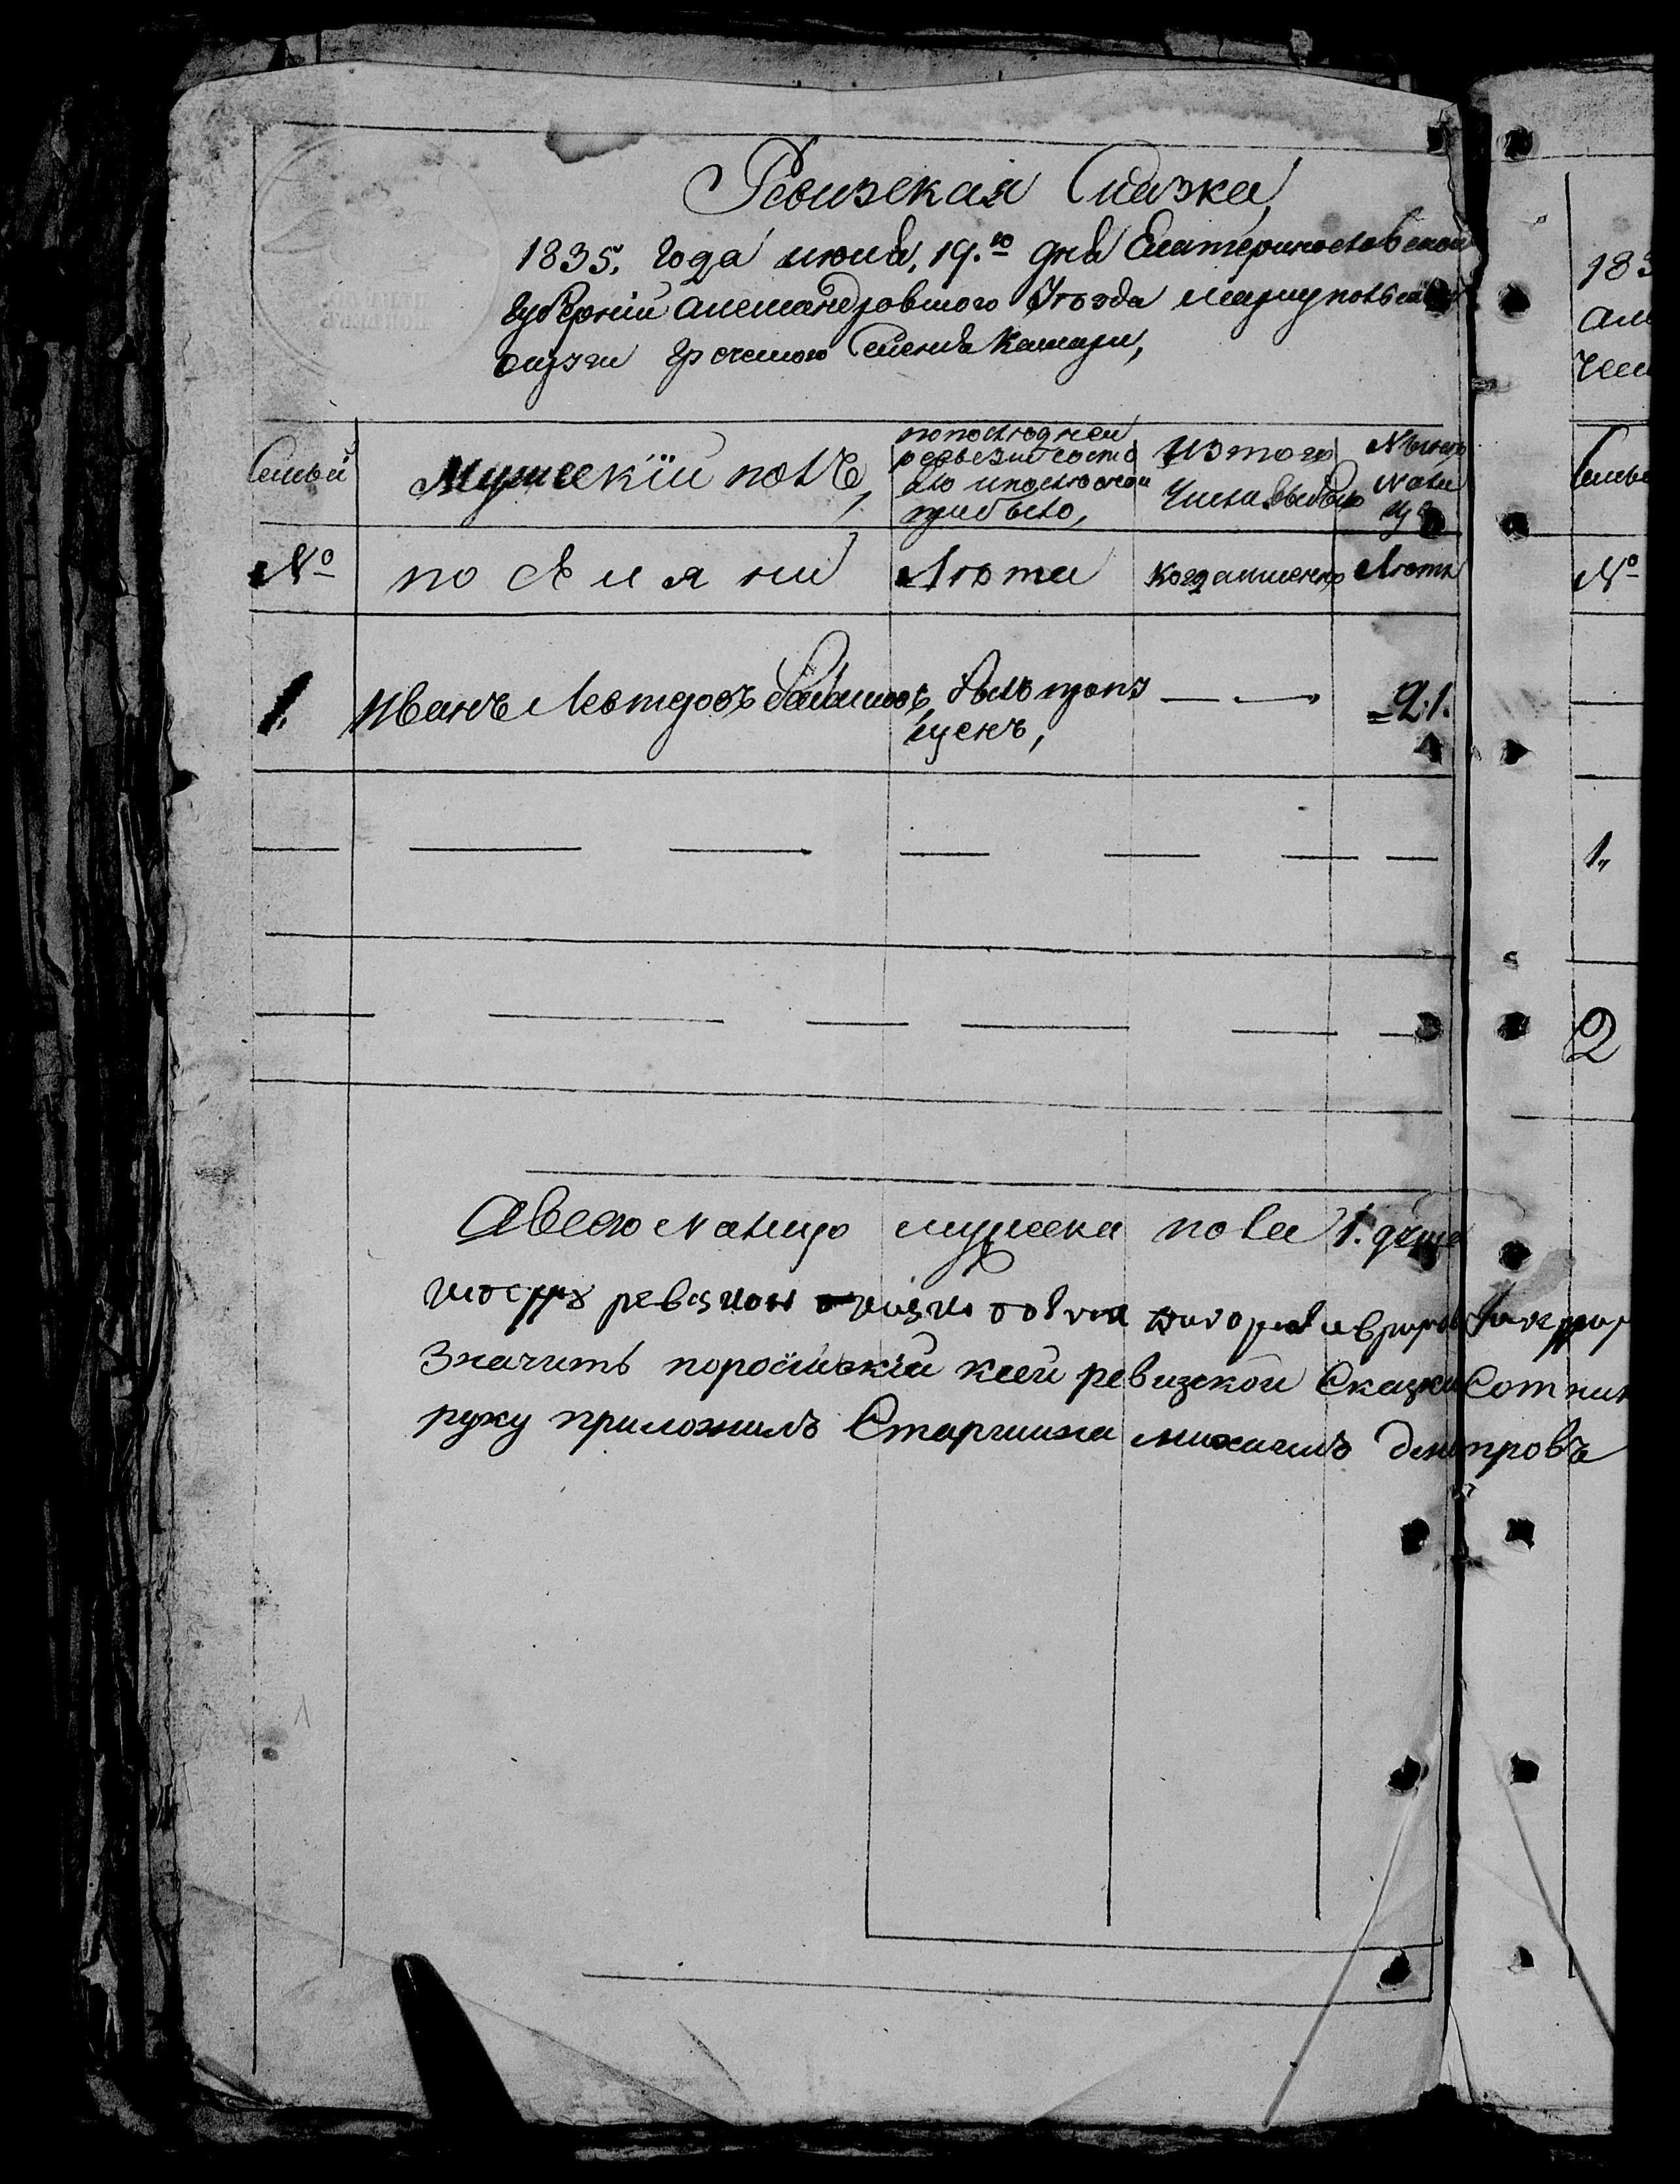 Ревизская Сказка,
1835. года июня, 19.го дня Екатеринославской
губернии александровского Уезда мариупольского
округи греческого селения Камари,
Семьи
Мужескiй полъ,
по последней ревезии состояло и после оной прибыло,
Из того Числа выбыло
Ныне На лицо
№
по имяни
Лета
Когда именно
Лета
1.
Иванъ Левтеровъ былъ пропущенъ,
— —
21.
Авсего Налицо мужеска пола 1. душа
ревизкой
Значитъ поросiйскiй ксей ревизской Сказки Сотник
руку приложилъ Старшина михаилъ дмитровъ
183
Семьи
№
1.
2